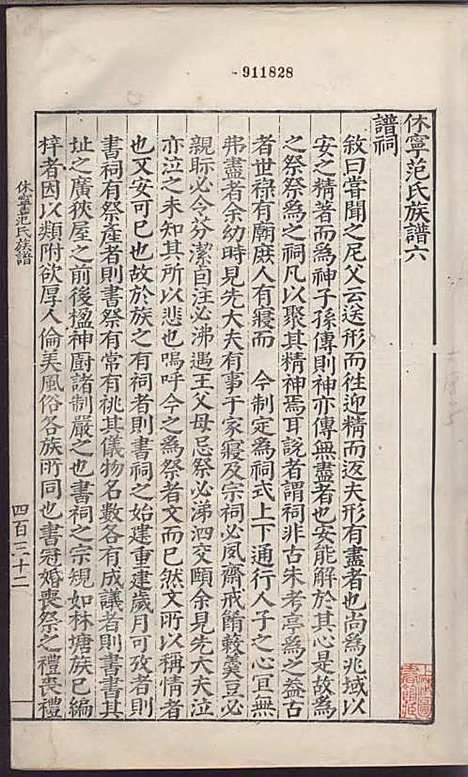 911828
休寧范氏族譜六
譜祠
敘曰嘗聞之尼父云送形而往迎精而返夫形有盡者也尚爲兆域以
安之精著而爲神子孫傳則神亦傳無盡者也安能解於其心是故爲
之祭祭爲之祠凡以聚其精神焉耳說者謂祠非古朱考亭爲之益古
者世祿有廟庶人有寢而　今制定爲祠式上下通行人子之心宜無
弗盡者余幼時見先大夫有事于家寢及宗祠必夙齋戒餚藙羹豆必
親眎必令芬潔自注必沸遇王父母忌祭必涕泗交頤余見先大夫泣
亦泣之未知其所以悲也嗚呼今之爲祭者文而已然文所以稱情者
也又安可已也故於族之有祠者則書祠之始建重建歲月可攷者則
書祠有祭產者則書祭有常有祧其儀物名數各有成議者則書書其
址之廣狹屋之前後楹神廚諸制嚴之也書祠之宗規如林塘族已編
梓者因以類附欲厚人倫美風俗各族所同也書冠婚喪祭之禮喪禮
休寧范氏族譜
四百三十二